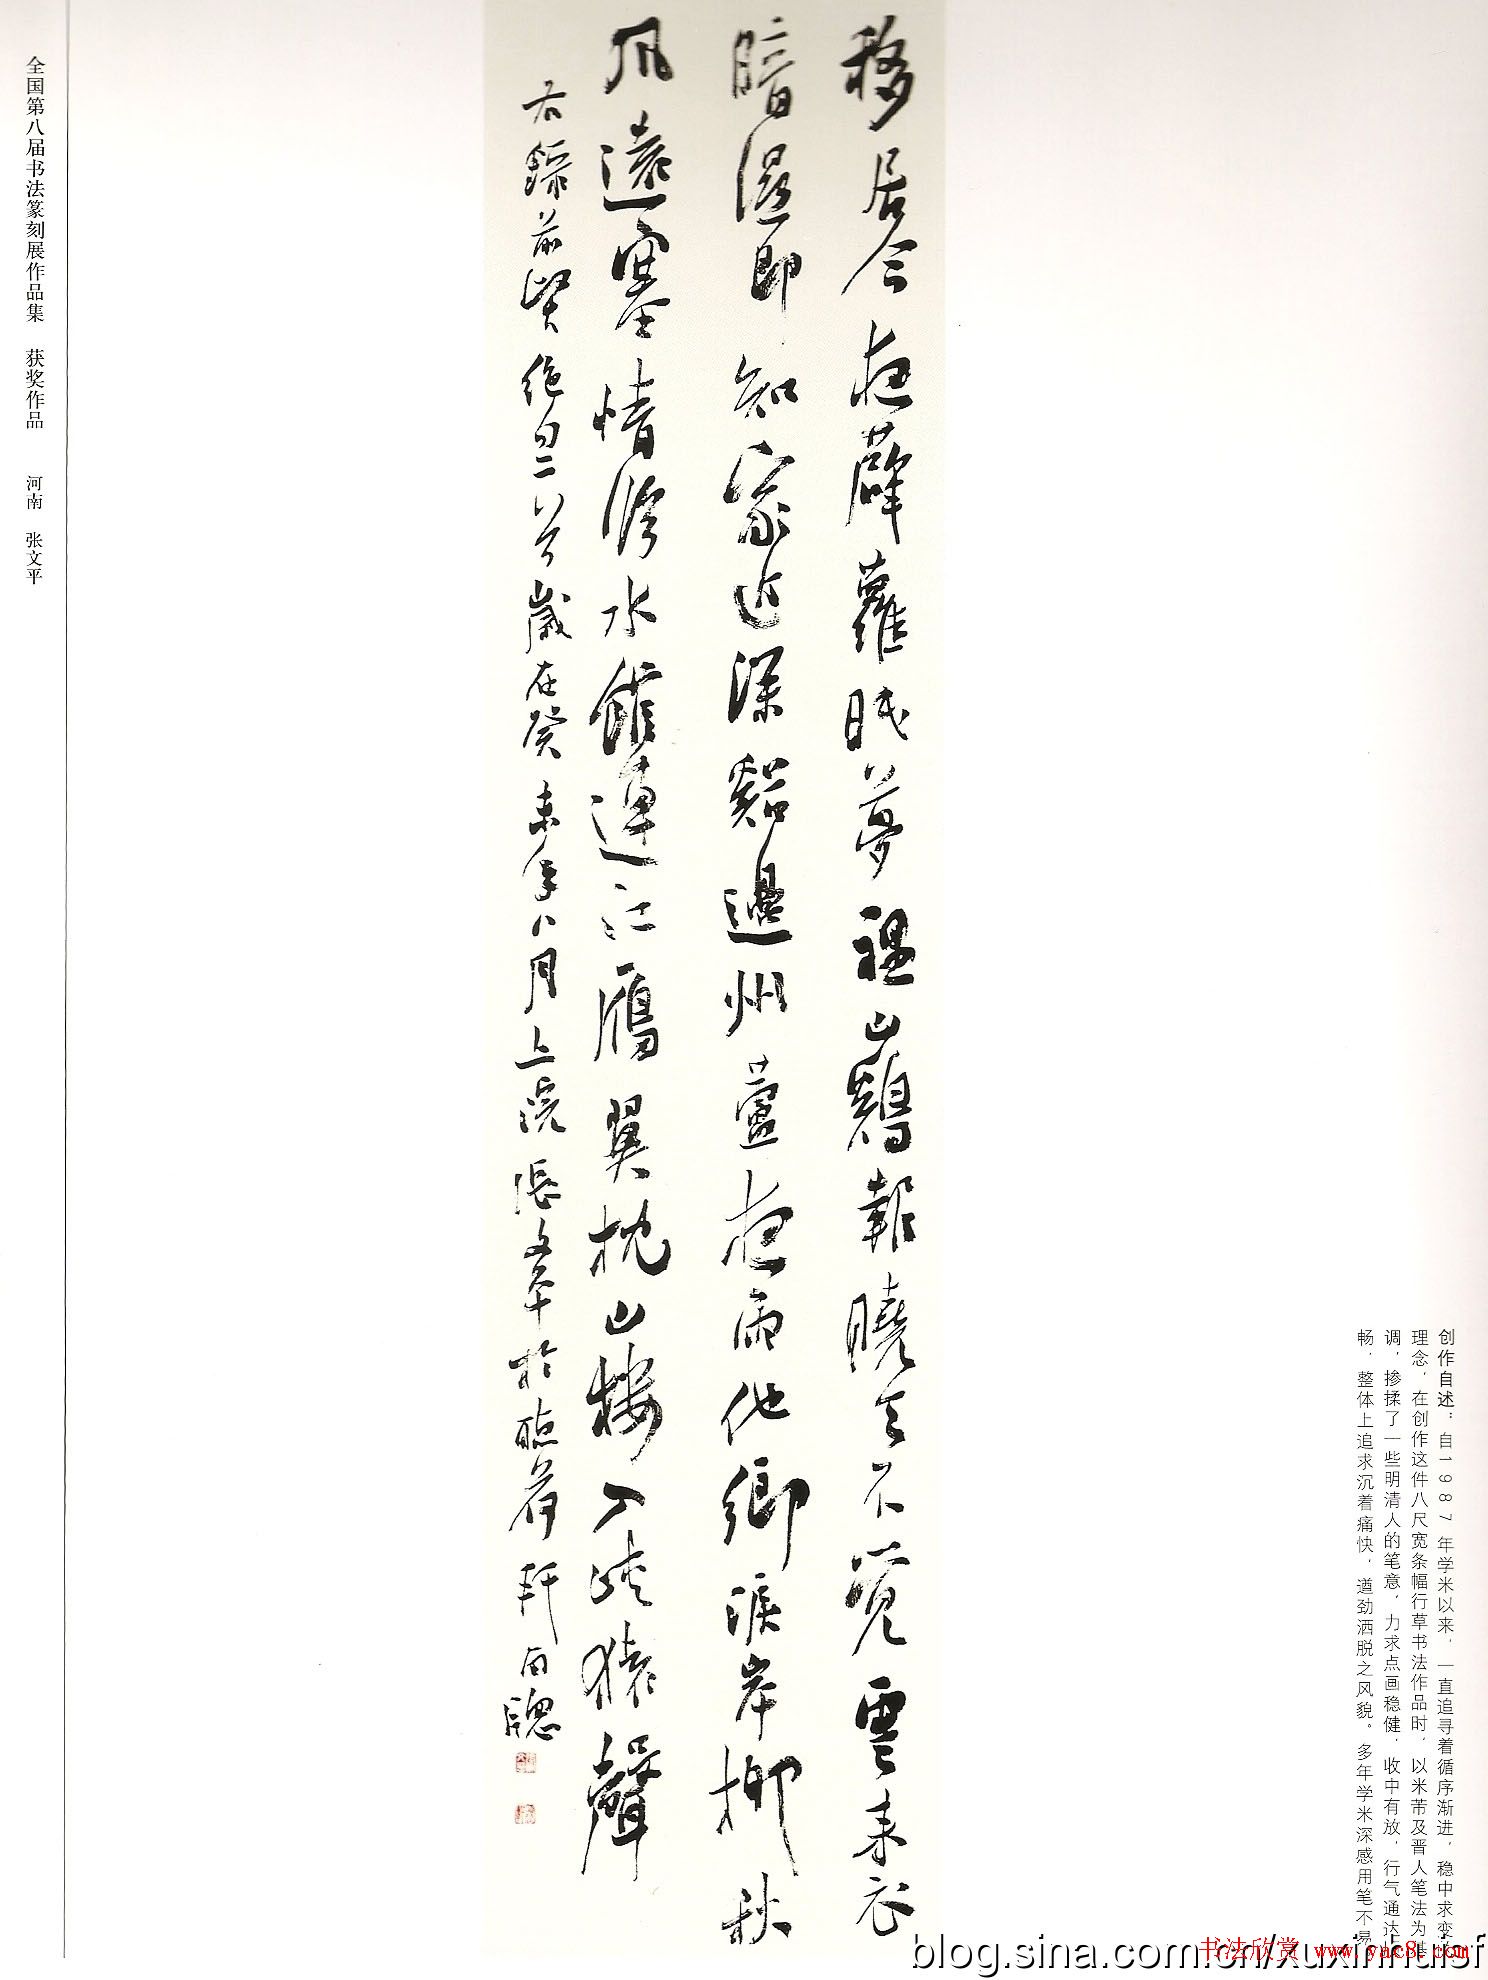 移居今夜薜蘿眠夢裡山鷄報曉天不覺雲来衣
暗濕即知家近深谿邊州蘆夜雨他鄉淚岸柳秋
風遠塞情臨水館連江鴈翼枕山樓入峽猿聲
右錄前賢絕句二首歲在癸未年八月上浣張文平於聽荷軒南牕
全国第八届书法篆刻展作品集 获奖作品 河南 张文平
创作自述：自1987年学米以来，一直追寻着循序渐进，稳中求变
理念，在创作这件八尺宽条幅行草书法作品时，以米芾及晋人笔法为基
调，掺揉了一些明清人的笔意，力求点画稳健，收中有放，行气通达
畅，整体上追求沉着痛快，遒劲洒脱之风貌。多年学米深感用笔不易
blog.sina.com.cn/xuxinhuisf
书法欣赏 www.yac8.com